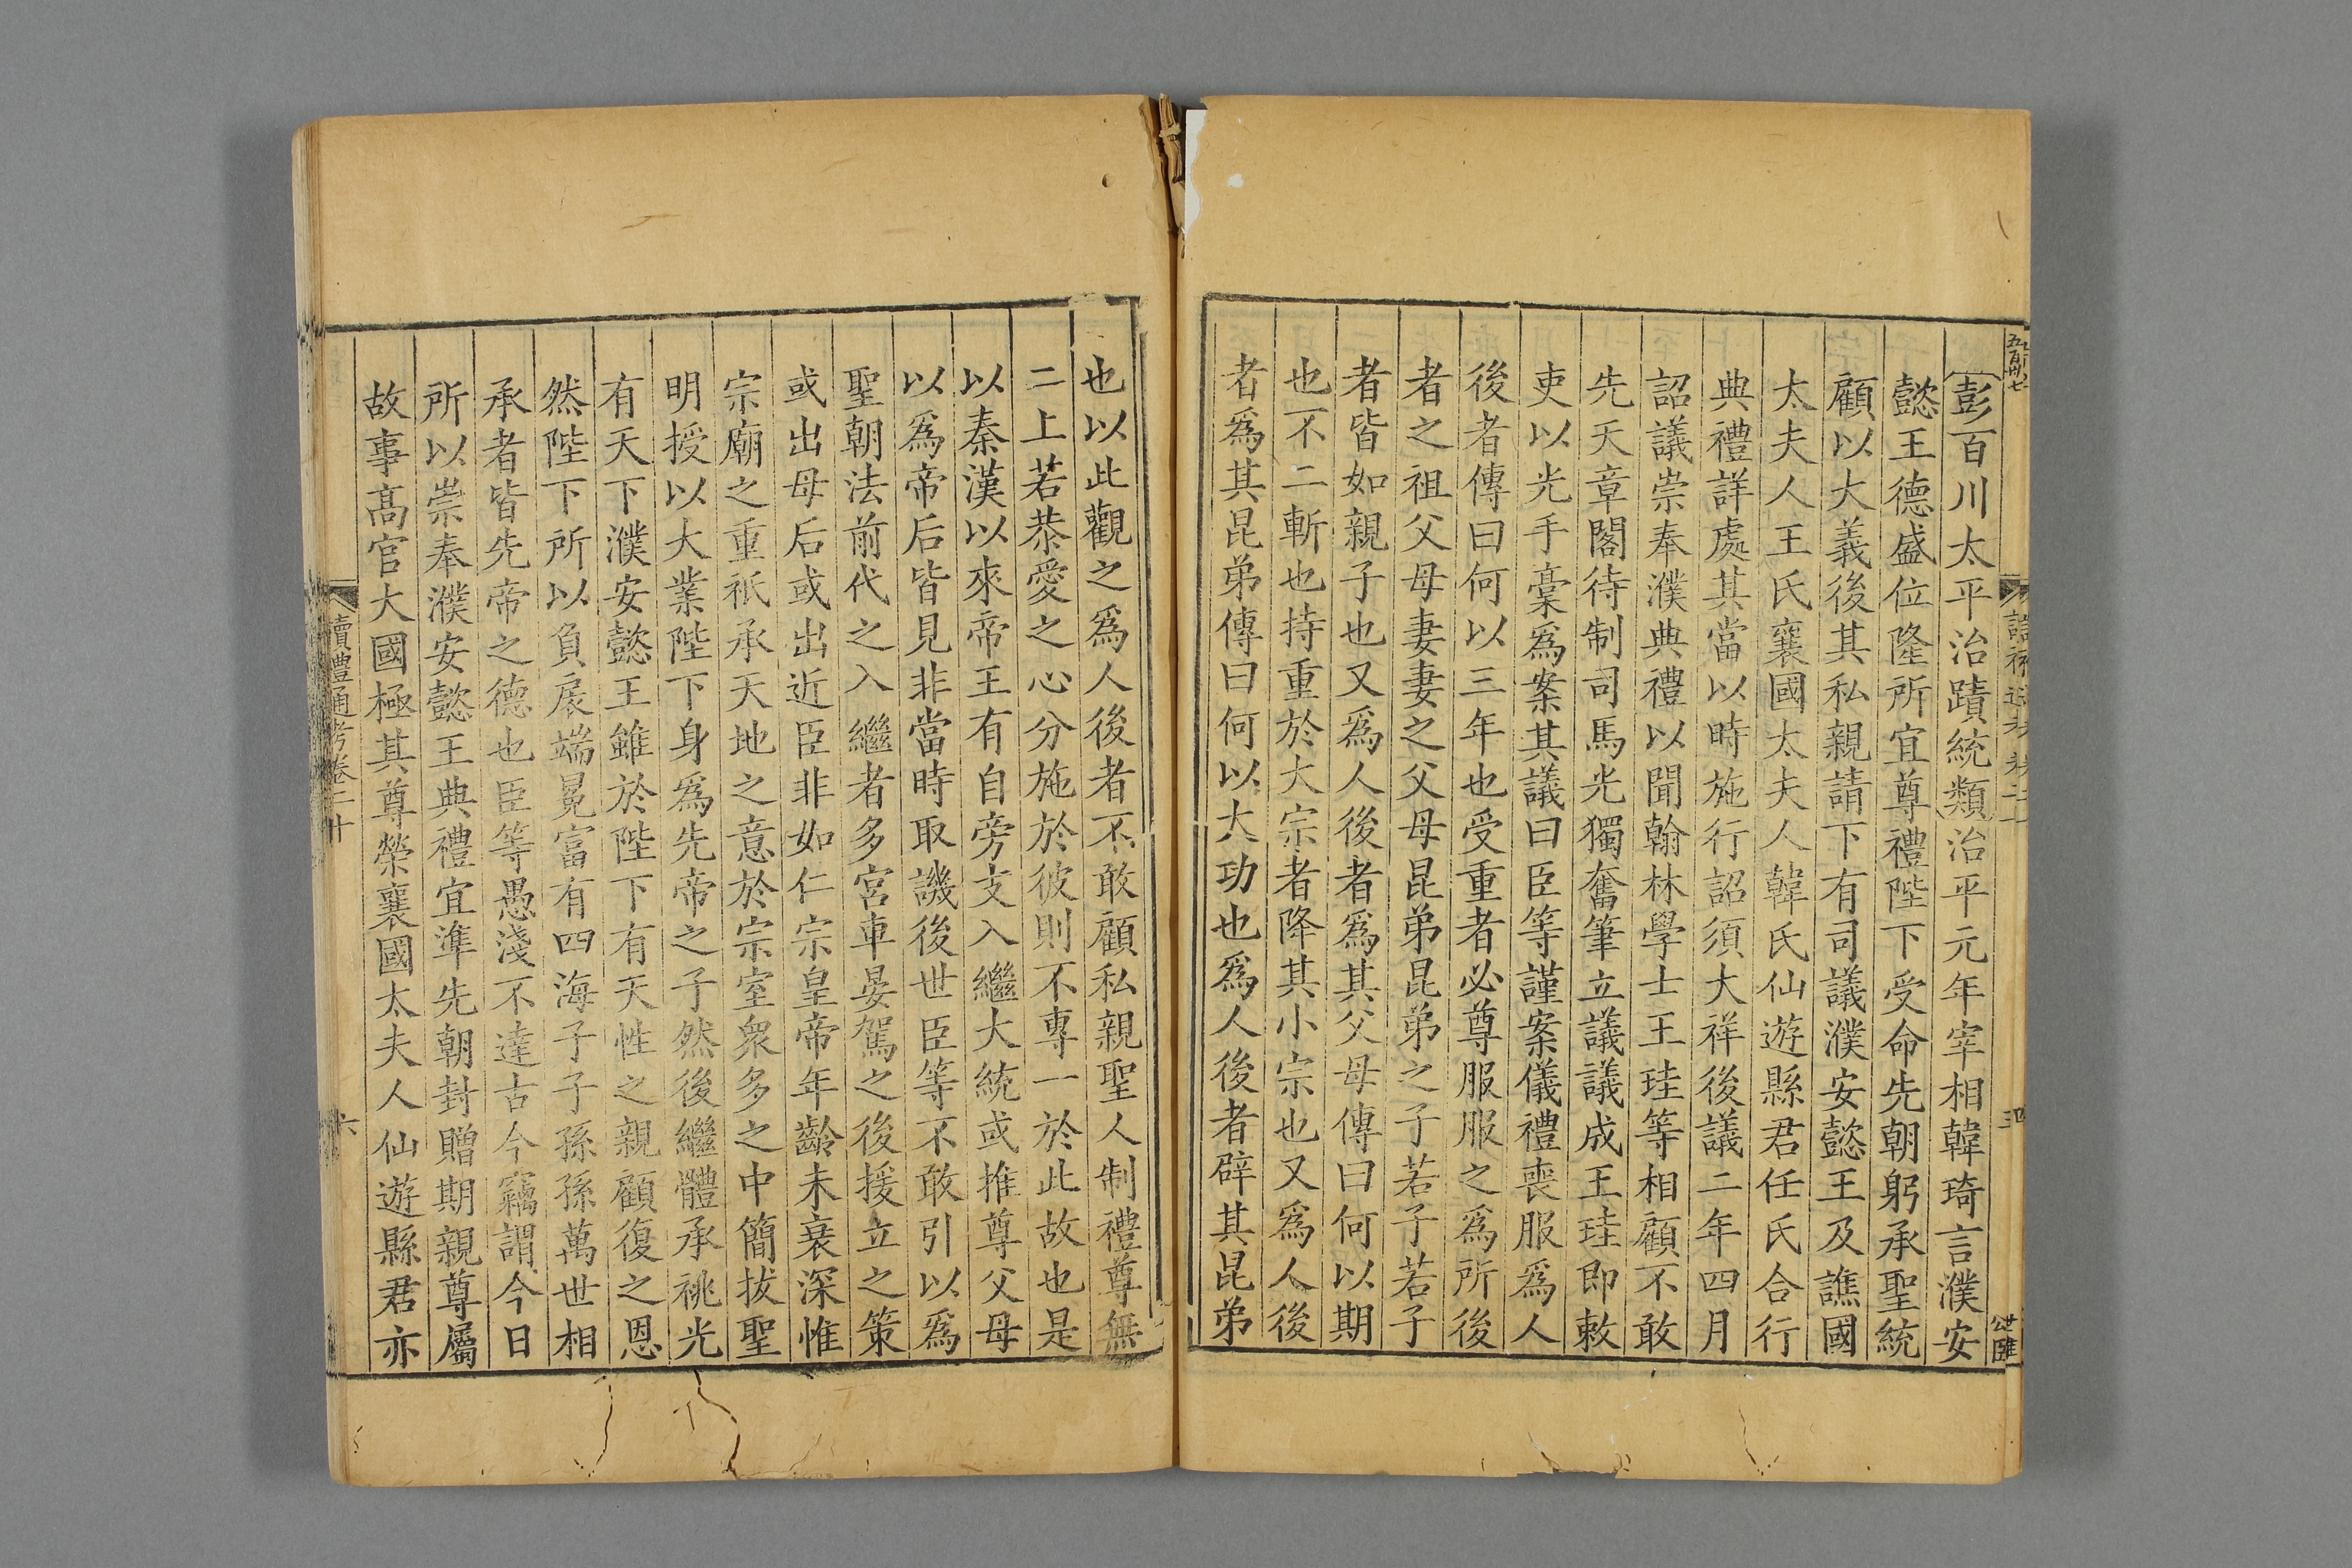 彭百川太平治蹟統類治平元年宰相韓琦言濮安
懿王德盛位隆所宜尊禮陛下受命先朝躬承聖統
顧以大義後其私親請下有司議濮安懿王及譙國
太夫人王氏襄國太夫人韓氏仙遊縣君任氏合行
典禮詳處其當以時施行詔須大祥後議二年四月
詔議崇奉濮典禮以聞翰林學士王珪等相顧不敢
先天章閣待制司馬光獨奮筆立議議成王珪即敕
吏以光手稾爲案其議曰臣等謹案儀禮喪服爲人
後者傳曰何以三年也受重者必尊服服之爲所後
者之祖父母妻妻之父母昆弟昆弟之子若子若子
者皆如親子也又爲人後者爲其父母傳曰何以期
也不二斬也持重於大宗者降其小宗也又爲人後
者爲其昆弟傳曰何以大功也爲人後者降其昆弟
也以此觀之爲人後者不敢顧私親聖人制禮尊無
二上若恭愛之心分施於彼則不專一於此故也是
以秦漢以來帝王有自旁支入繼大統或推尊父母
以爲帝后皆見非當時取譏後世臣等不敢引以爲
聖朝法前代之入繼者多宮車晏駕之後援立之策
或出母后或出近臣非如仁宗皇帝年齡未衰深惟
宗廟之重祇承天地之意於宗室衆多之中簡拔聖
明授以大業陛下身爲先帝之子然後繼體承祧光
有天下濮安懿王雖於陛下有天性之親顧復之恩
然陛下所以負扆端冕富有四海子子孫孫萬世相
承者皆先帝之德也臣等愚淺不達古今竊謂今日
所以崇奉濮安懿王典禮宜準先朝封贈期親尊屬
故事高官大國極其尊榮襄國太夫人仙遊縣君亦
讀禮通考卷二十
六